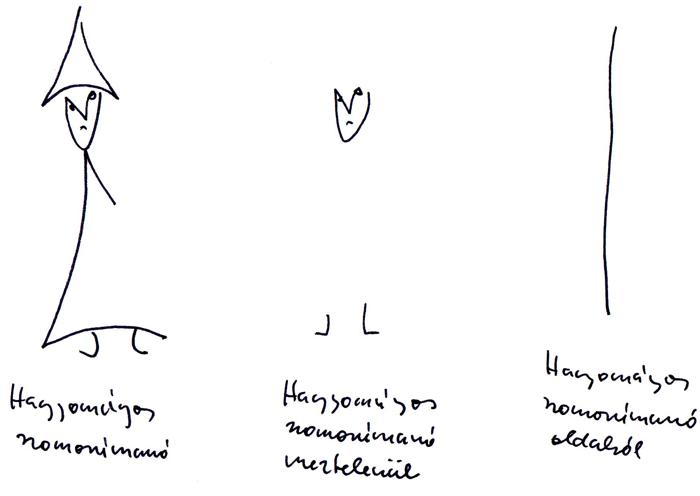 Hagyományos
szomorúmanó
Hagyományos
szomorúmanó
meztelenül
Hagyományos
szomorúmanó
oldalról